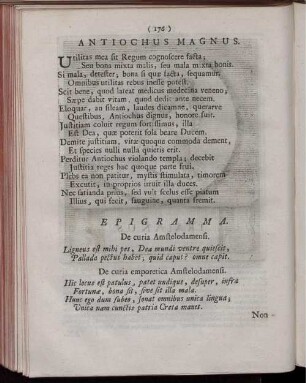 ( 176 )
ANTIOCHUS MAGNUS.
Utilitas mea sit Regum cognoscere facta;
Seu bona mixta malis, seu mala mixta bonis.
Si mala, detester, bona si quæ facta, sequamur.
Omnibus utilitas rebus inesse potest.
Scit bene, quod lareat medicus modestina veneno,
Sæpe dabit vitam, quod dedit ante necem.
Eloquar, an sileam, laudes dicamne, querarve
Questibus, Antiochus dignus, honore fuit.
Justitiam coluit regum fortissimus, illa
Est Dea, quæ poterit sola beare Ducem.
Demite justitiam, vitæ quoque commoda dement,
Et species nulli nulla quieris erit.
Perditur Antiochus violando templa; decebit
Justitia reges hac quoque parte frui.
Plebs ea non patitur, mystis stimulata, timorem
Excutit, in proprios irruit illa duces.
Nec satianda prius, sed vult scelus esse piatum
Illius, qui fecit, sanguine, quanta fremit.
EPIGRAMMA.
De curia Amstelodamensi.
Ligneus est mihi pes, Dea mundi ventre quiescit,
Pallada pectus habet, quid caput? omne capit.
De curia emporetica Amstelodamensi.
Hic locus est patulus, patet undique, desuper, infra
Fortunæ, bona sit, sive sit illa mala.
Hunc ego dum subeo, sonat omnibus unica lingua;
Unica nam cunctis patria Creta manet.
Non